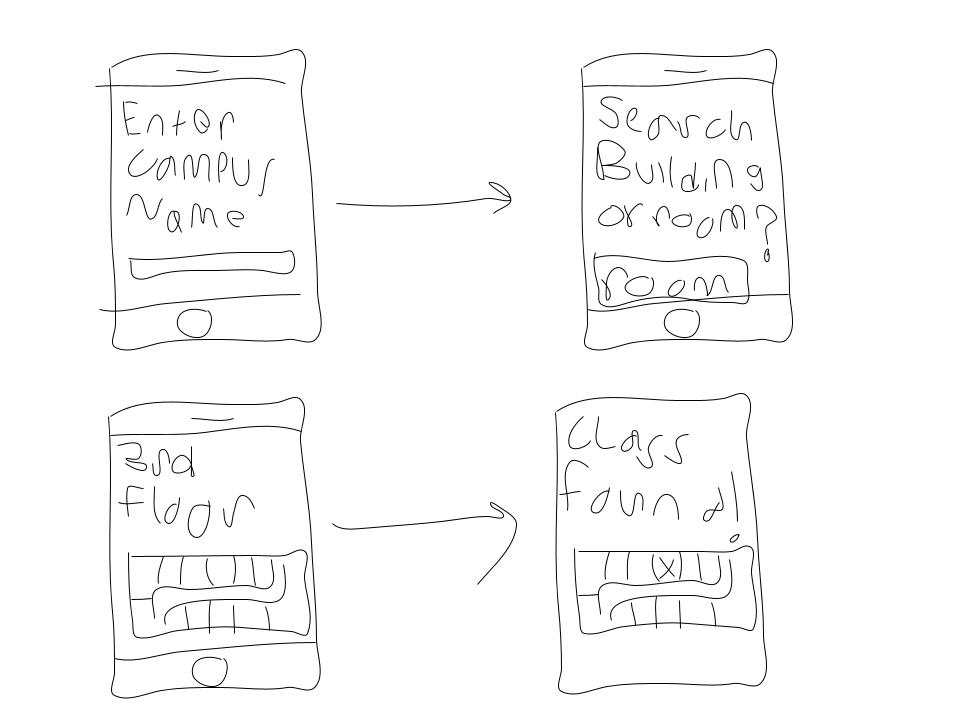 Enter
campus
Name
Search
Building
or room?
room
3rd
floor
Class
found!
X